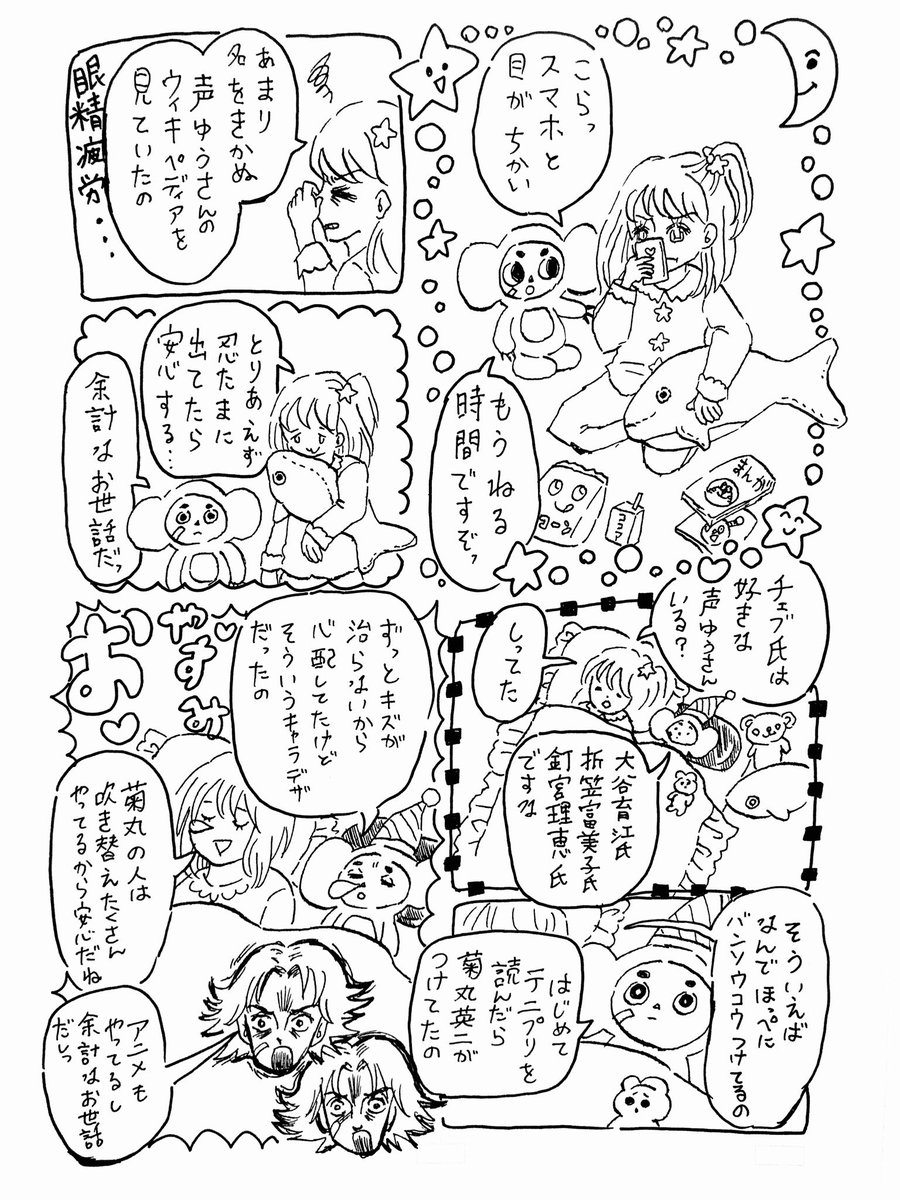 こらっ
スマホと
目がちかい
もうねる
時間ですぞっ
あまり
名をきかぬ
声ゆうさんの
ウィキペディアを
見ていたの
眼精疲労・・・
とりあえず
忍たまに
出てたら
安心する…
余計なお世話だっ
チェブ氏は
好きな
声ゆうさん
いる?
大谷育江氏
折笠富美子氏
釘宮理恵氏
ですな
してた
そういえば
なんでほっぺに
バンソウコウつけてるの
はじめて
テニプリを
読んだら
菊丸英二が
つけてたの
ずっとキズが
治らないから
心配してたけど
そういうキャラデザ
だったの
菊丸の人は
吹き替えたくさん
やってるから安心だね
アニメも
やってるし
余計なお世話
だしっ
おやすみ